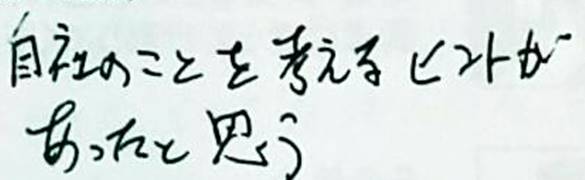 自社のことを考えるヒントが
あったと思う